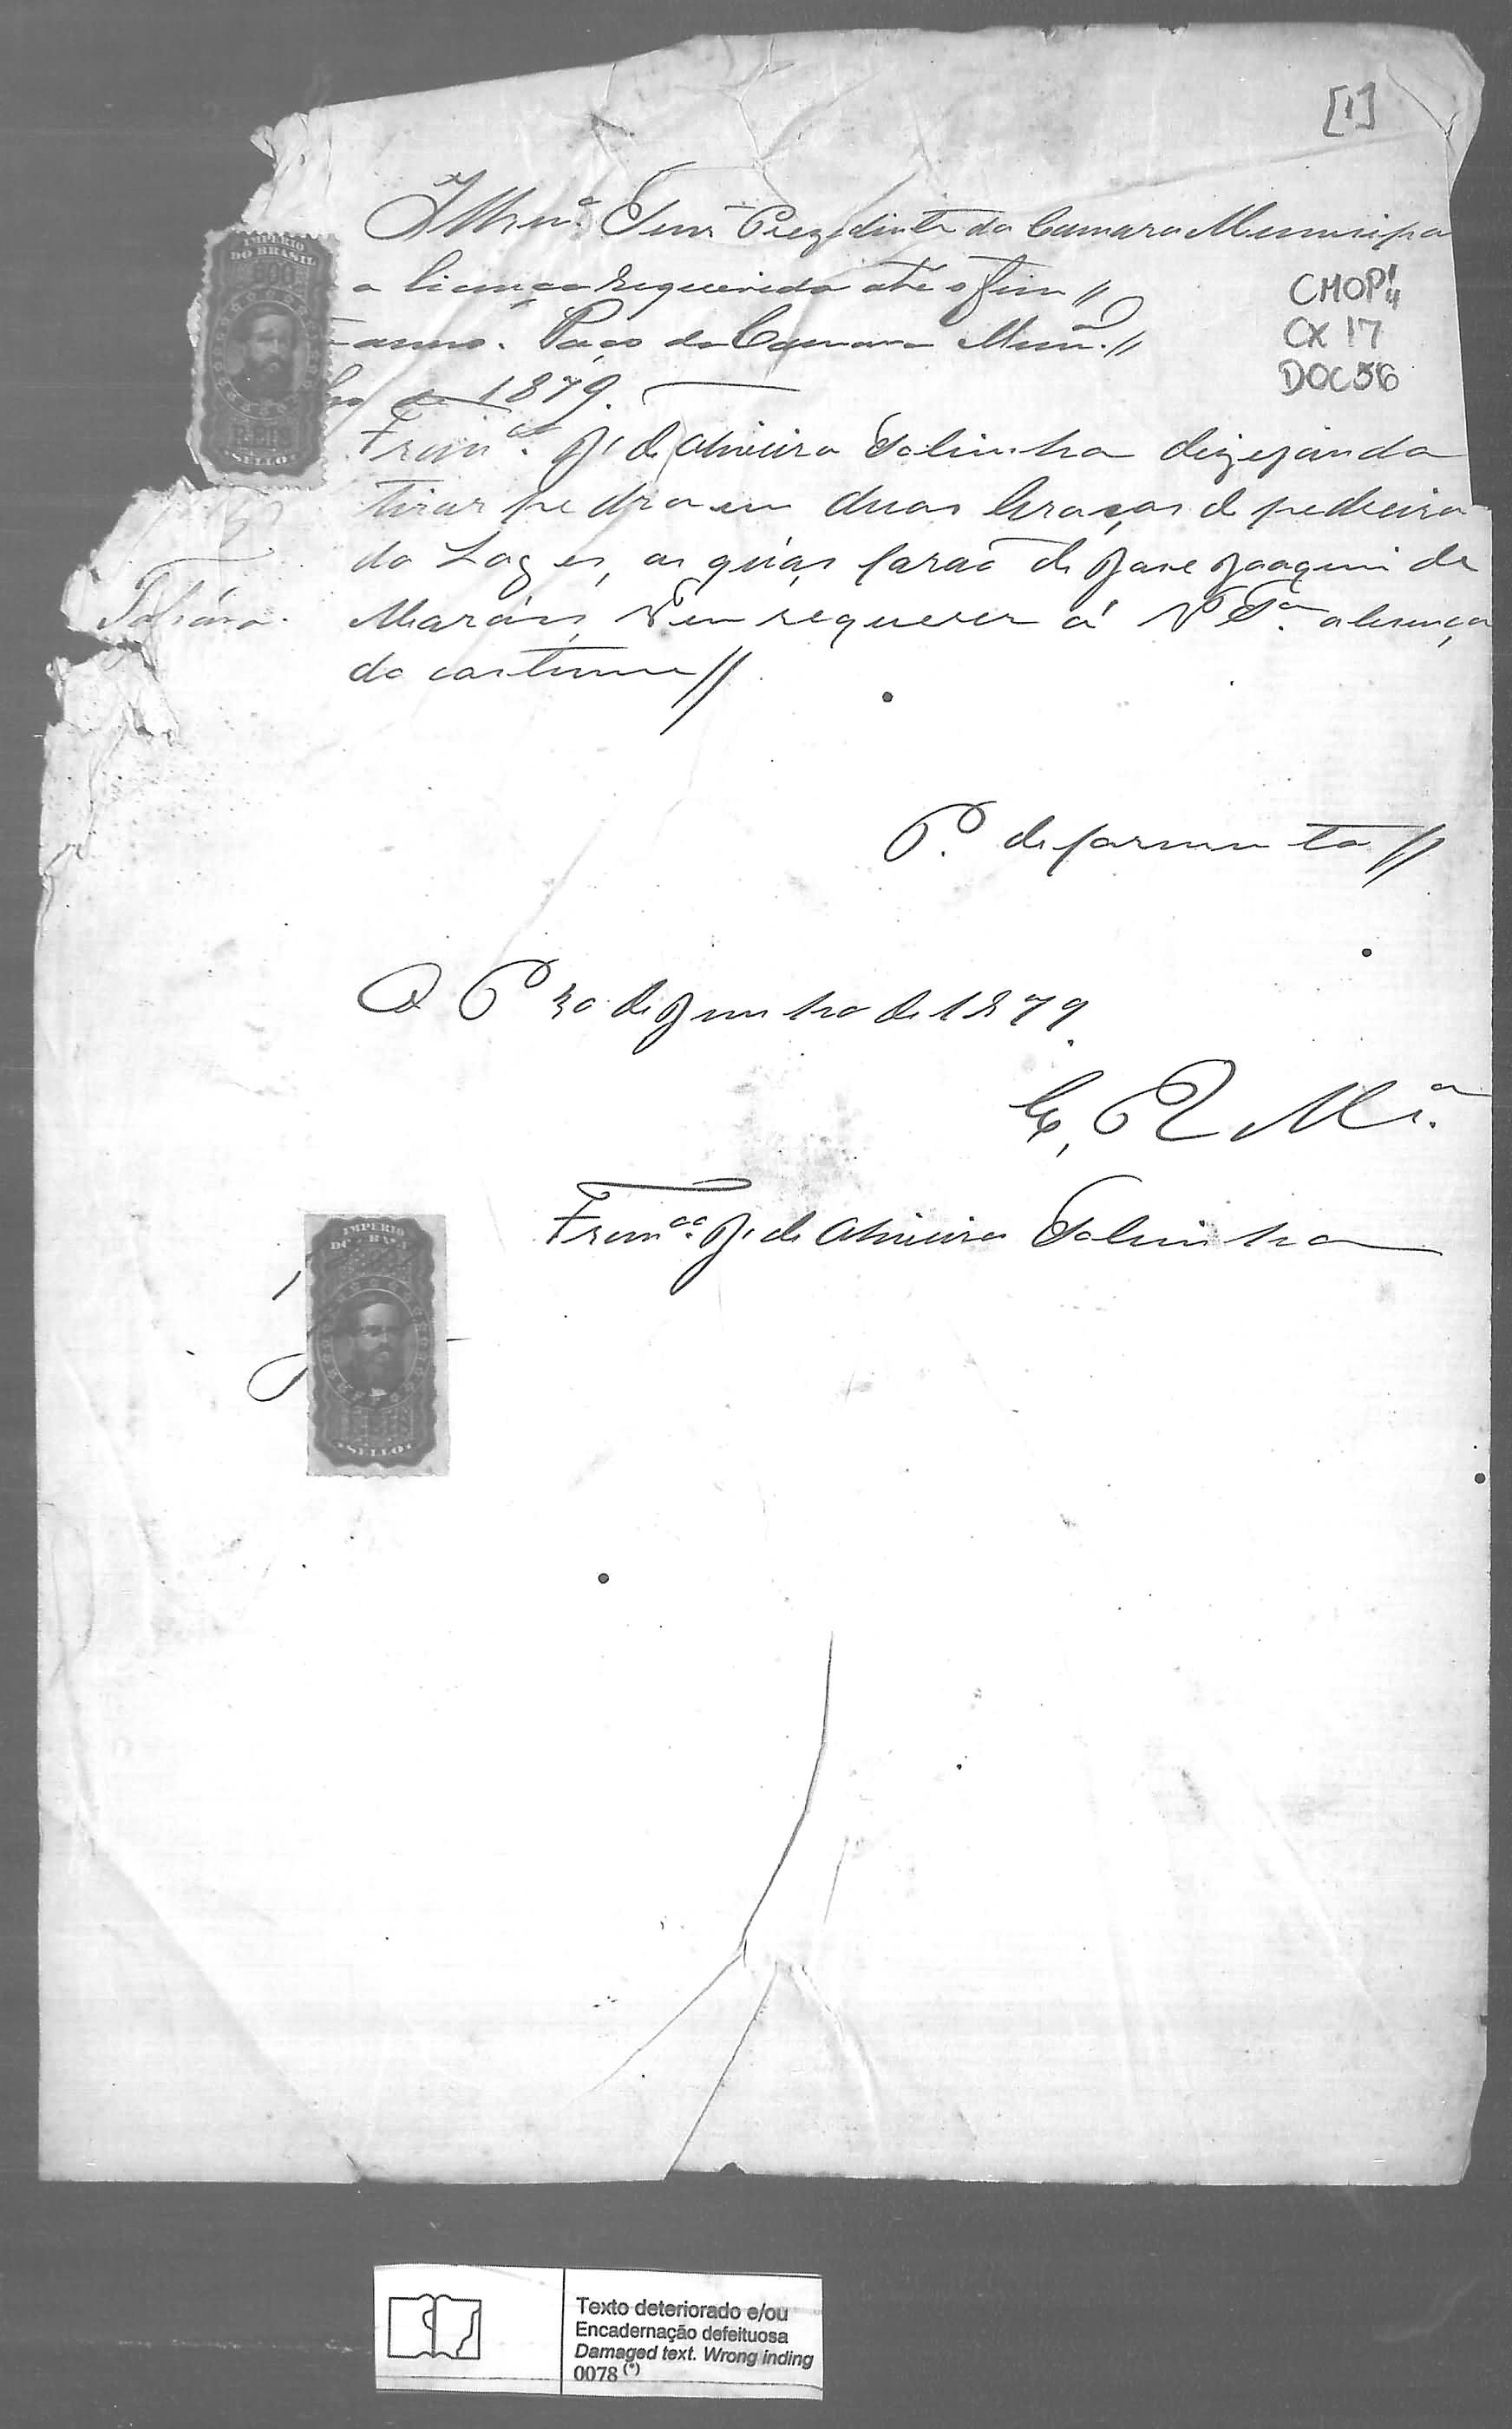 [1]
Illmº Senr Prezidente da Camara Municipa
a licença requerida até o fim //
anno. Paço da Camara Mun.al //
1879.
CMOP
CX 17
DOC 56
IMPERIO
DO BRASIL
SELLO
Franco. J. de Oliveira Saburinha dizejando
tirar pedra em duas braças de pedreira
da Lages, as quáis farão de Jose Joaquim de
Moráis, Vem requerer á V Sª. a licença
do costume //
P. deferimento //
O P 30 de Junho de 1879.
E. R. Mce.
Franco. J. de Oliveira
IMPERIO
DO BRASIL
SELLO
Texto deteriorado e/ou
Encadernação defeituosa
Damaged text. Wrong inding
0078 (*)